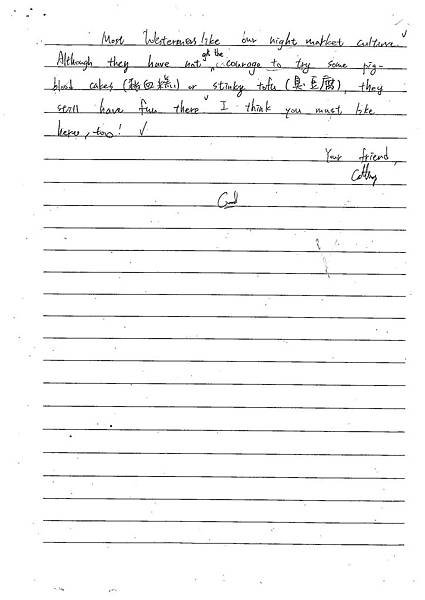 Most Westerners like our night market culture.
Although they have not got the courage to try some pig-
blood cakes (豬血糕) or stinky tofu (臭豆腐), they
still have fun there. I think you must like
here, too!
Your friend,
Cathy
Good